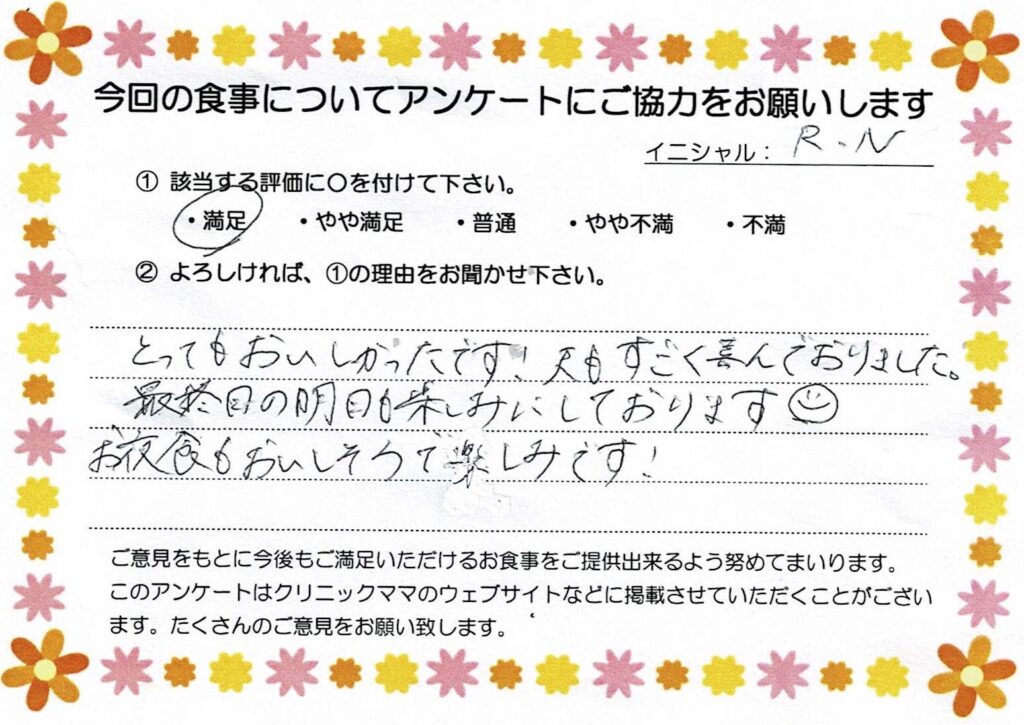 今回の食事についてアンケートにご協力をお願いします
イニシャル： R.N
① 該当する評価に〇を付けて下さい。
・満足 ・やや満足 ・普通 ・やや不満 ・不満
② よろしければ、①の理由をお聞かせ下さい。
とってもおいしかったです！夫もすごく喜んでおりました。
最終日の明日も楽しみにしております
お夜食もおいしそうで楽しみです！
ご意見をもとに今後もご満足いただけるお食事をご提供出来るよう努めてまいります。
このアンケートはクリニックママのウェブサイトなどに掲載させていただくことがござい
ます。たくさんのご意見をお願い致します。